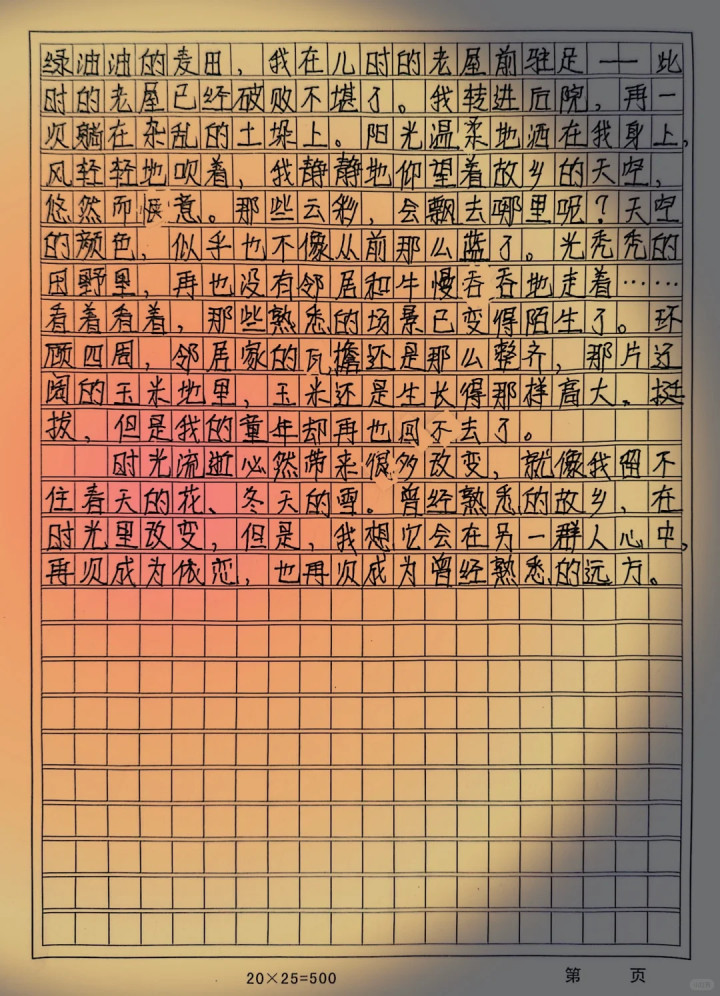 绿油油的麦田，我在儿时的老屋前驻足——此
时的老屋已经破败不堪了。我转进后院，再一
次躺在杂乱的土垛上。阳光温柔地洒在我身上，
风轻轻地吹着，我静静地仰望着故乡的天空，
悠然而惬意。那些云彩，会飘去哪里呢？天空
的颜色，似乎也不像从前那么蓝了。光秃秃的
田野里，再也没有邻居和牛慢吞吞地走着……
看着看着，那些熟悉的场景已变得陌生了。环
顾四周，邻居家的瓦檐还是那么整齐，那片辽
阔的玉米地里，玉米还是生长得那样高大、挺
拔，但是我的童年却再也回不去了。
时光流逝必然带来很多改变，就像我留不
住春天的花、冬天的雪。曾经熟悉的故乡，在
时光里改变，但是，我想它会在另一群人心中，
再次成为依恋，也再次成为曾经熟悉的远方。
20×25=500
第 页